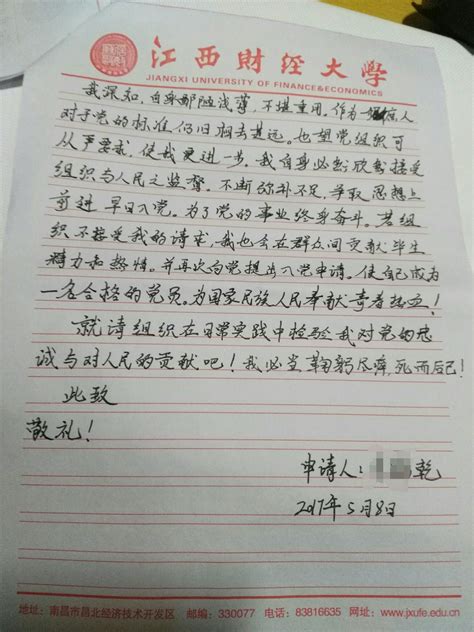 江西财经大学
JIANGXI UNIVERSITY OF FINANCE&ECONOMICS
我深知，自身鄙陋浅薄，不堪重用，作为一人
对于党的标准仍旧相去甚远。也望党组织可
从严要求，使我更进一步，我自身必欣然接受
组织与人民之监督。不断弥补不足，争取思想上
前进 早日入党。为了党的事业终身奋斗。若组
织不接受我的请求，我也会在群众间贡献毕生
精力和热情。并再次向党提出入党申请。使自己成为
一名合格的党员。为国家民族人民奉献青春热血！
就请组织在日常实践中检验我对党的忠
诚与对人民的贡献吧！我必当鞠躬尽瘁，死而后已！
此致
敬礼！
申请人：乾
2017年5月8日
地址：南昌市昌北经济技术开发区 邮编：330077 电话：83816635 网址：www.jxufe.edu.cn